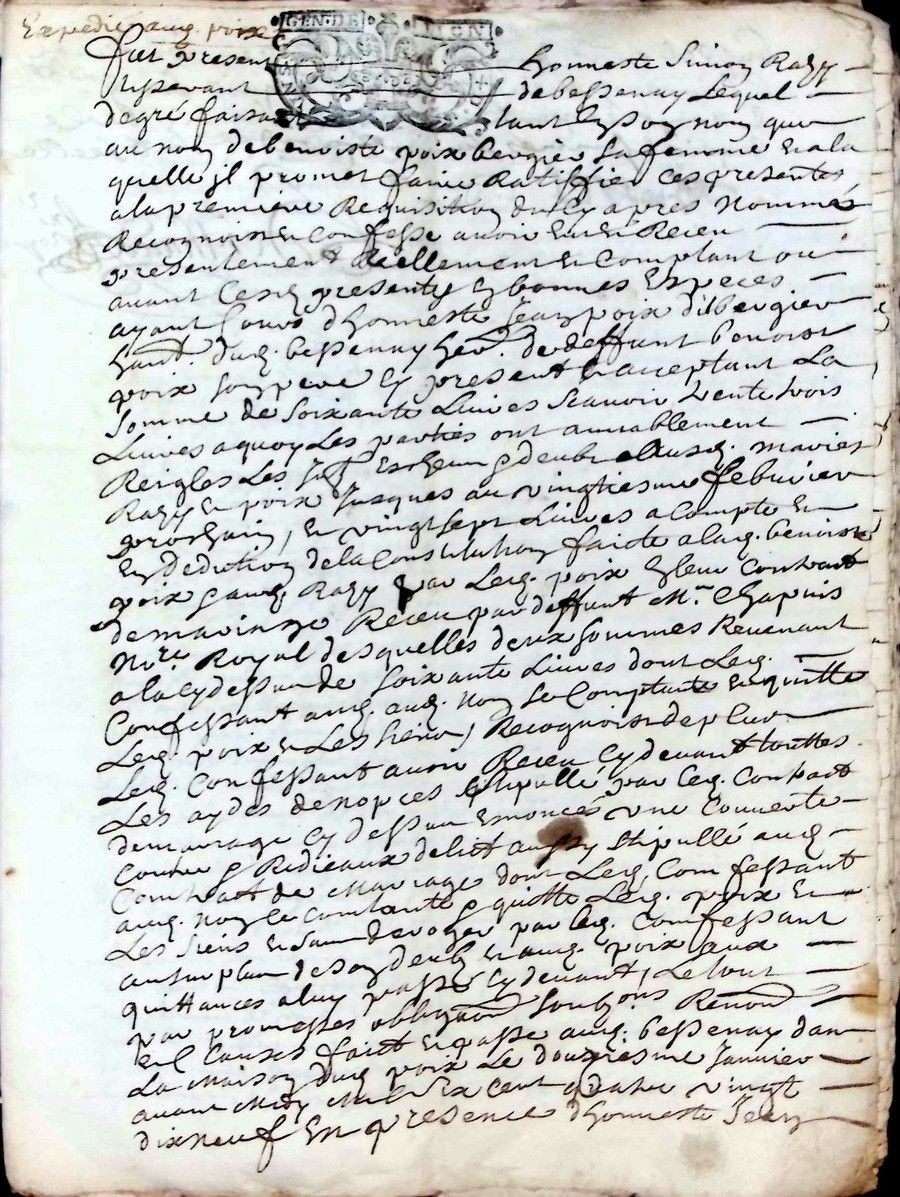 Expedié aud. poix
GEN. DE LION
fut present honneste Simon Razy
tisserant de bessenay Lequel
de gré faisant tant en son nom que
au nom de benoiste poix bergier sa femme a la
quelle jl promet faire Ratiffier ces presentes
a la premiere Requisition du cy apres nommé
Recognoist et confesse avoir eu et Receu
presentement Reellement et comptant ou
avant ces presentes en bonnes Especes
ayant cours d'honneste Jean poix dit bergier
habt. dud. bessenay her. de deffunt benoist
poix son pere cy present et acceptant La
somme de soixante Livres scavoir trente trois
Livres a quoy Les parties ont amiablement
Reigles Les Escheus deubt ausd. mariés
Razy et poix Jusques au vingtiesme febvrier
prochain, et vingt sept Livres a compte et
en dedution de la Constitution faicte a lad. benoiste
poix aud. Razy par Led. poix en leur contract
de mariage Receu par deffunt Mr. Chapuis
Nore. Royal desquelles deux sommes Revenant
a la cy dessus de soixante Livres dont Led.
Confessant aud. nom se Contante et quitte
Led. poix et Les siens, Recognoist de plus
Led. Confessant avoir Receu cy devant touttes
Les aydes de nopces stipullé par Led. Contract
de mariage cy dessus enoncés une Couverte
comme Rideaux de lict aussy stipullé aud.
Contract de Mariage dont Led. Confessant
aud. nom se contante quitte Led. poix et
Les siens et sans deroger par led. Confessant
au surplus de son deub et aud. poix aux
quittances a luy passées cy devant, Le tout
par promesses obligaon soubzons Renonon
et Clauses faict et passé aud. bessenay dans
La Maison dud. poix Le douziesme Janvier
avant Midy Mil six cent quatre vingt
dix neuf En presence d'honneste Jean